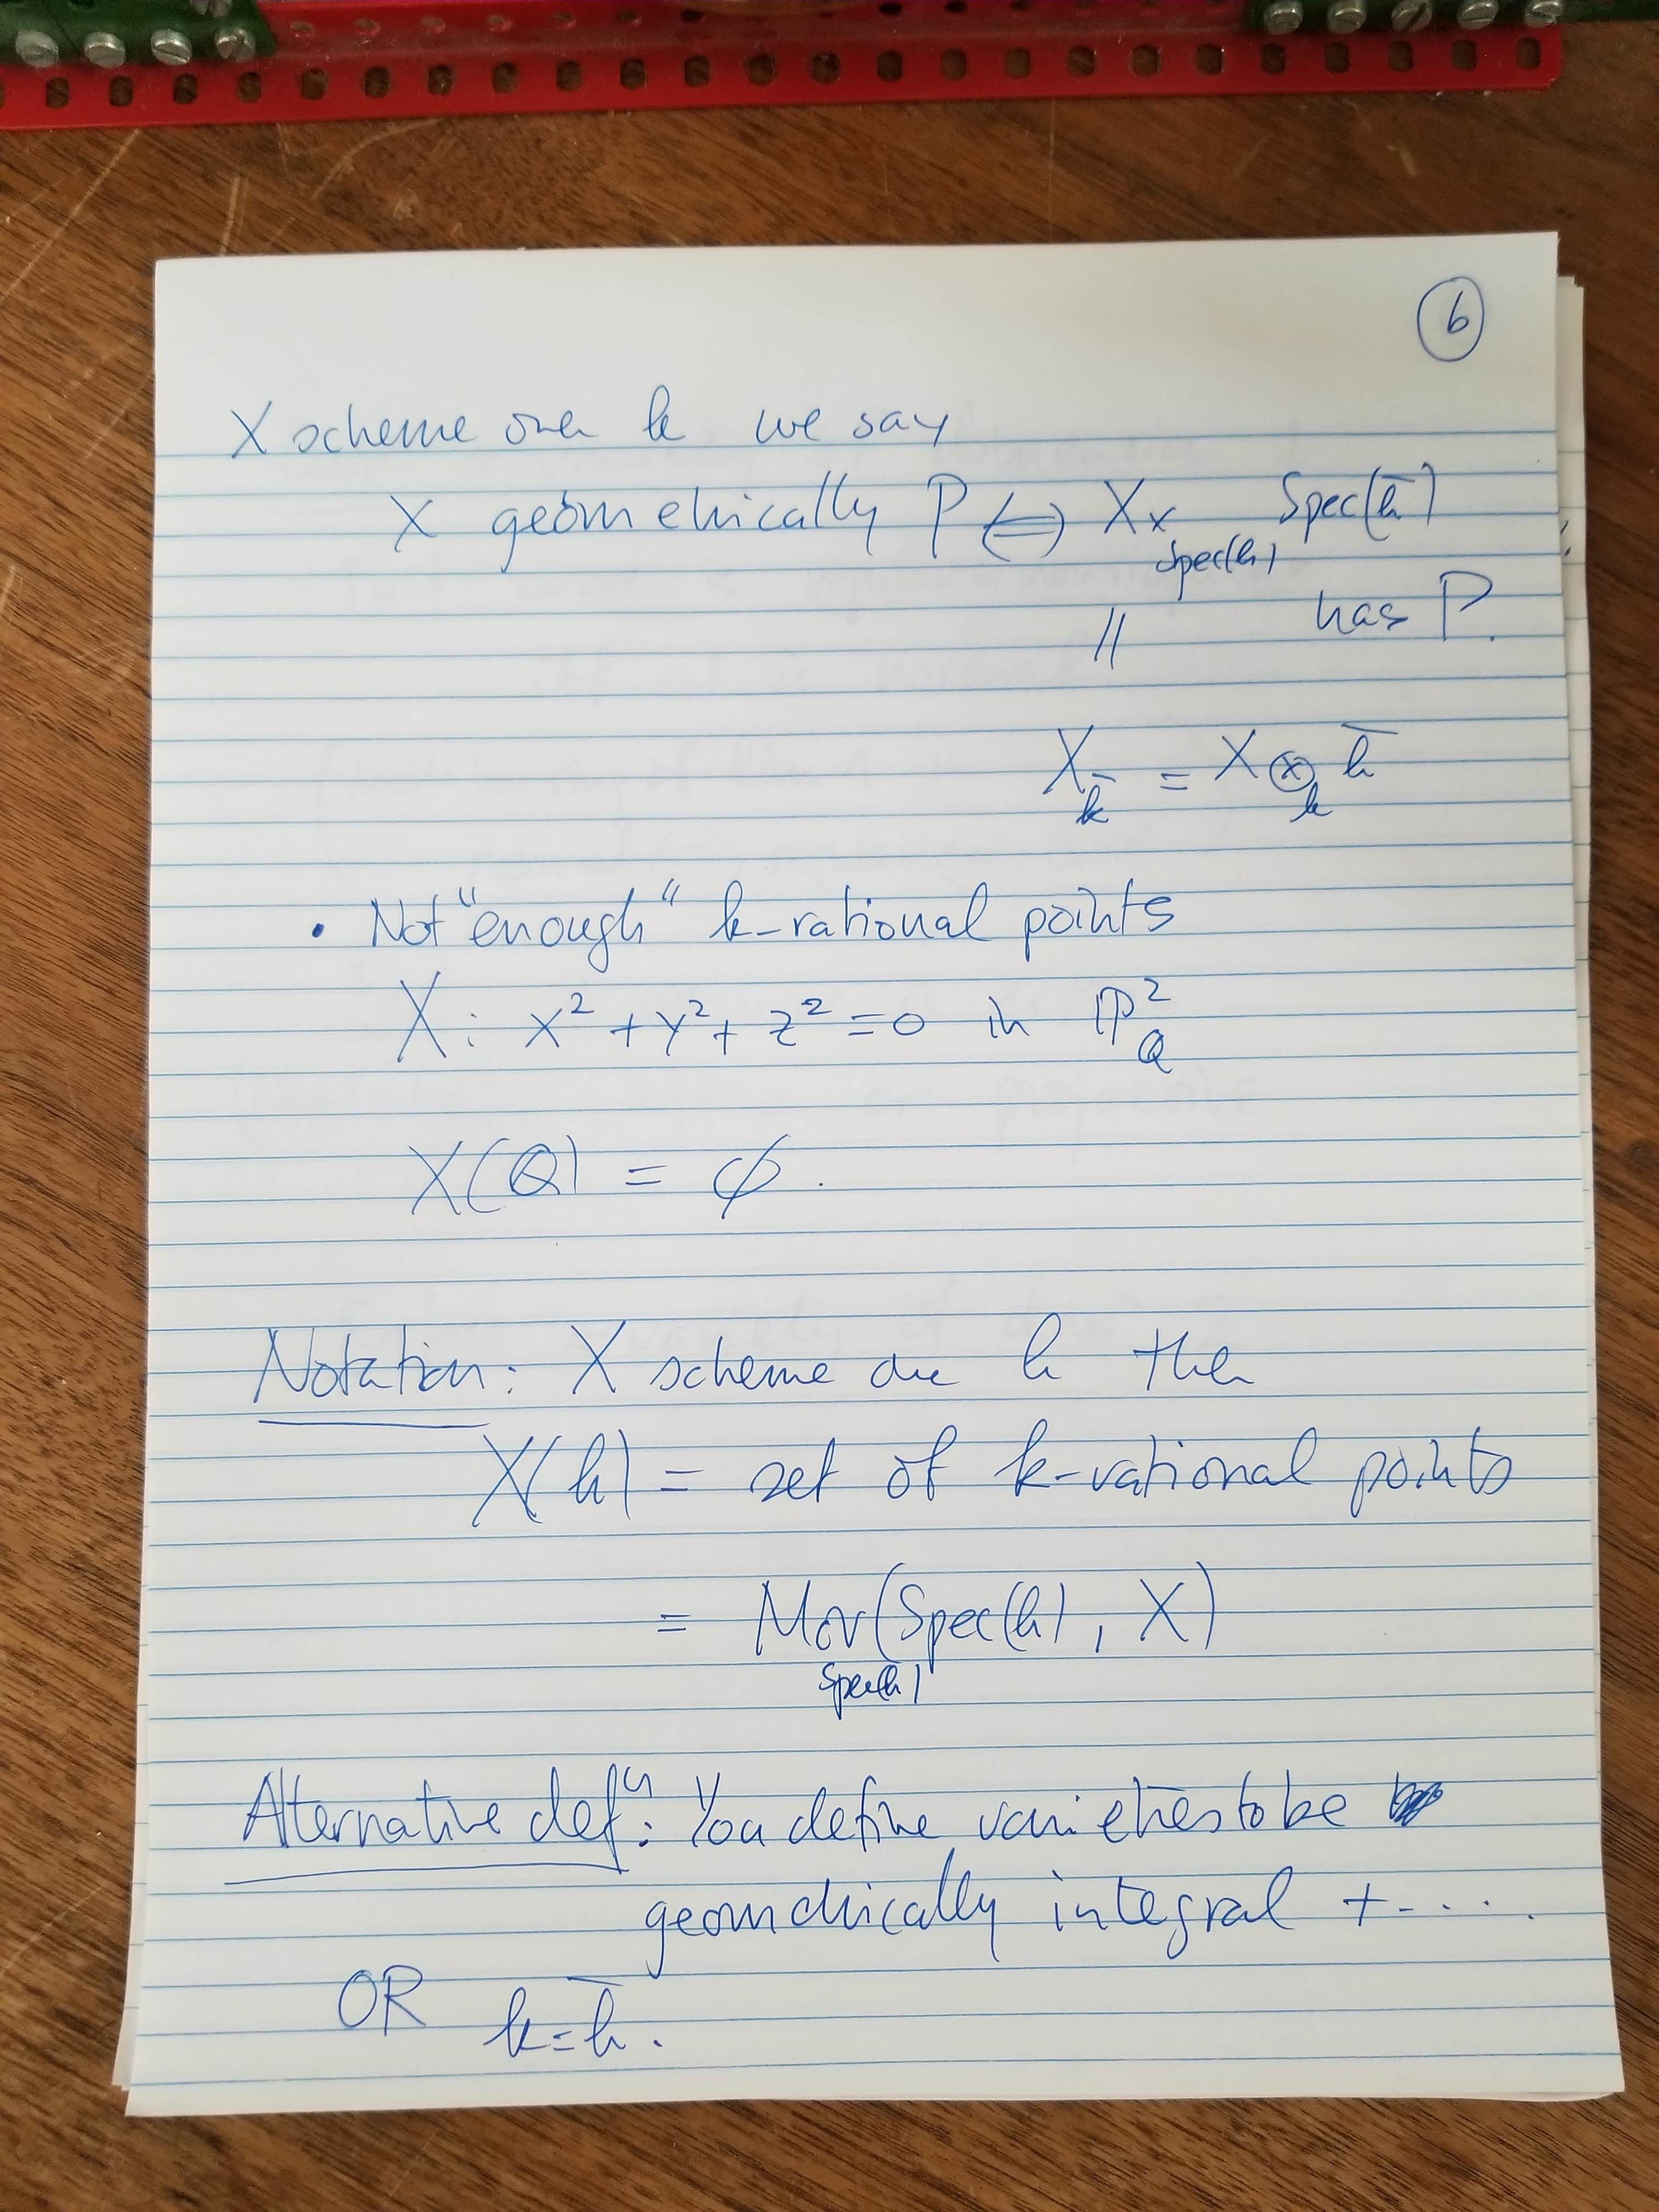 6
X scheme over k we say
X geometrically P ⟺ X ×_Spec(k) Spec(k̄)
has P.
||
X_k̄ = X ⊗_k k̄
• Not "enough" k-rational points
X: x² + y² + z² = 0 in ℙ²_Q
X(Q) = ∅.
Notation: X scheme over k then
X(k) = set of k-rational points
= Mor_Spec(k)(Spec(k), X)
Alternative defⁿ: You define varieties to be
geometrically integral + ....
OR k = k̄.